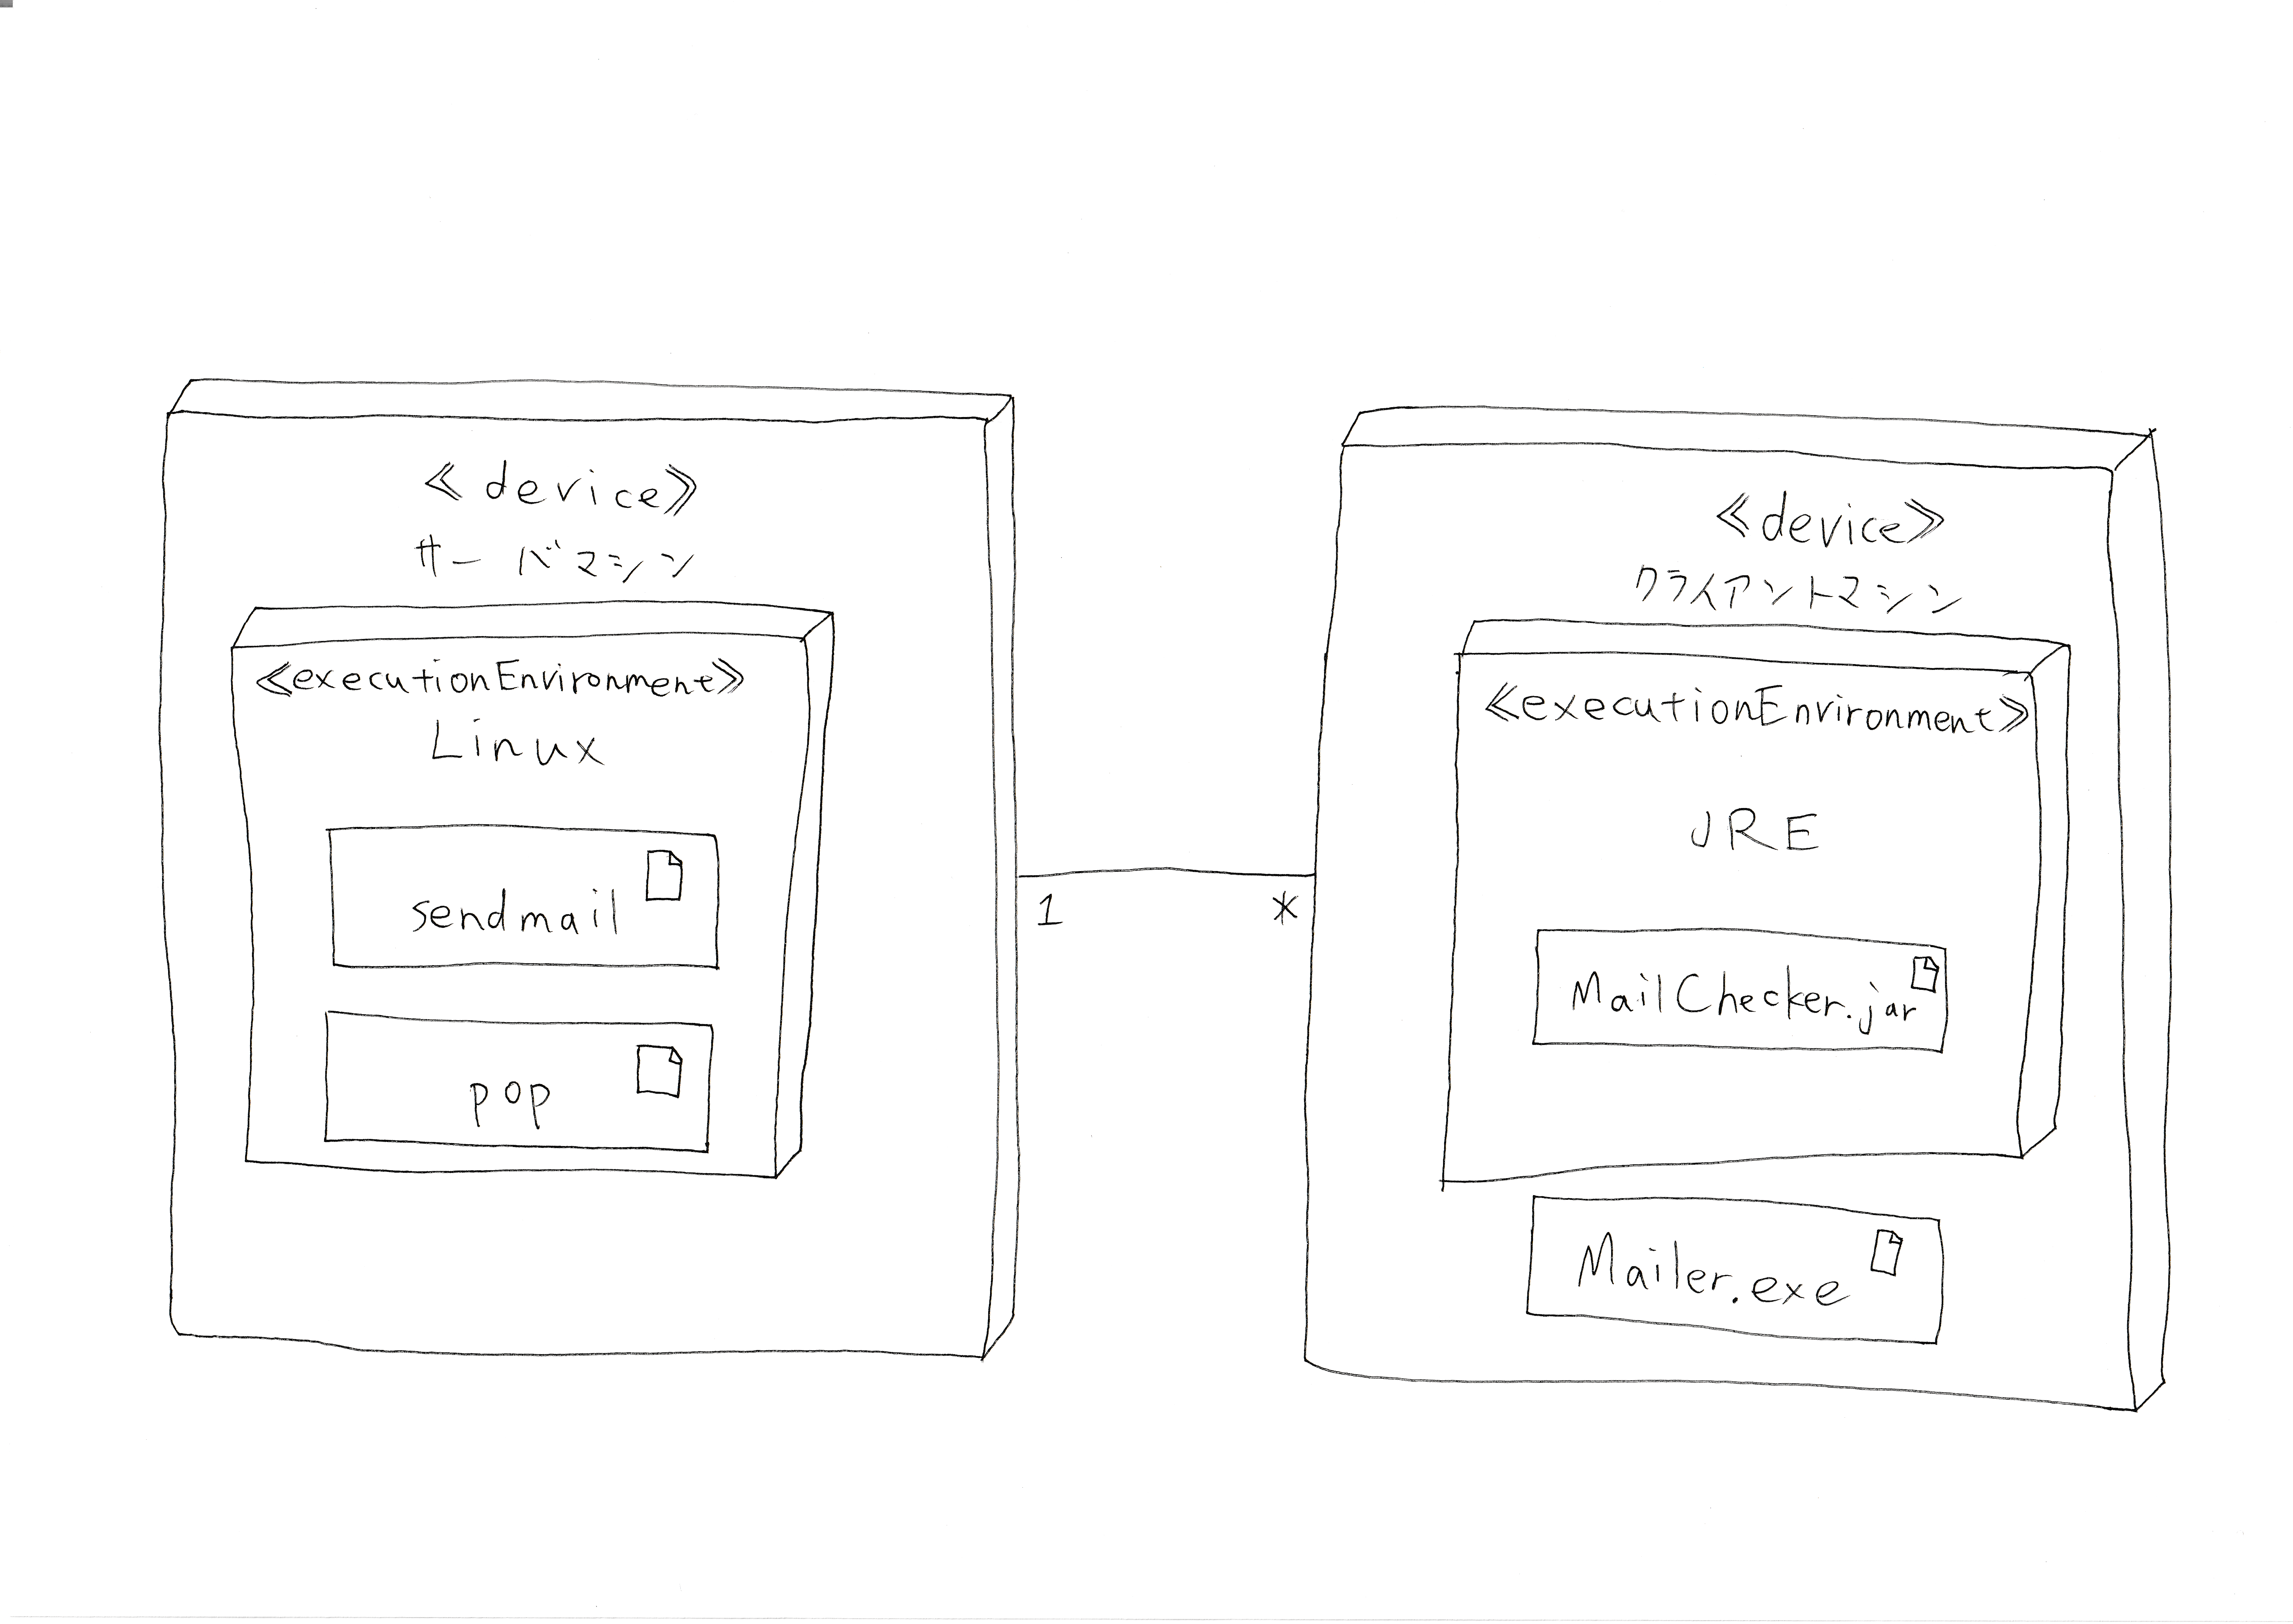 ≪device≫
サーバマシン
≪executionEnvironment≫
Linux
sendmail
pop
1
*
≪device≫
クライアントマシン
≪executionEnvironment≫
JRE
MailChecker.jar
Mailer.exe